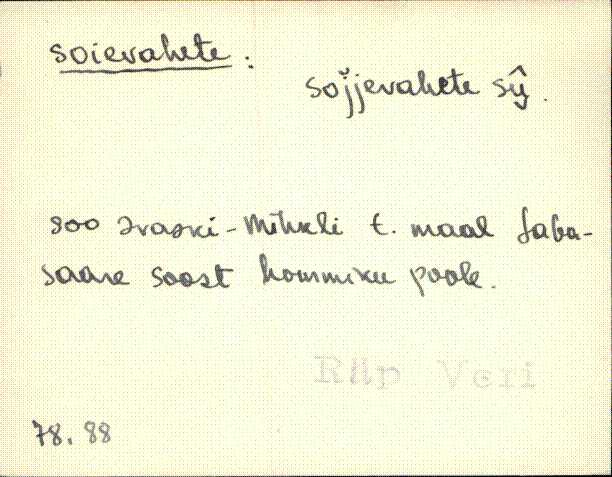 soievahete:
sojjevahete sŷ.
soo Ivaski-Mihkli t. maal Laba-
saare soost hommiku poole.
Räp Veri
78. 88